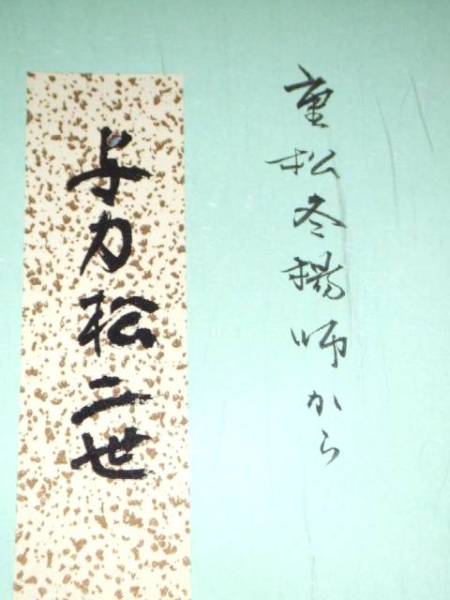 重松冬楊師から
与力松二世